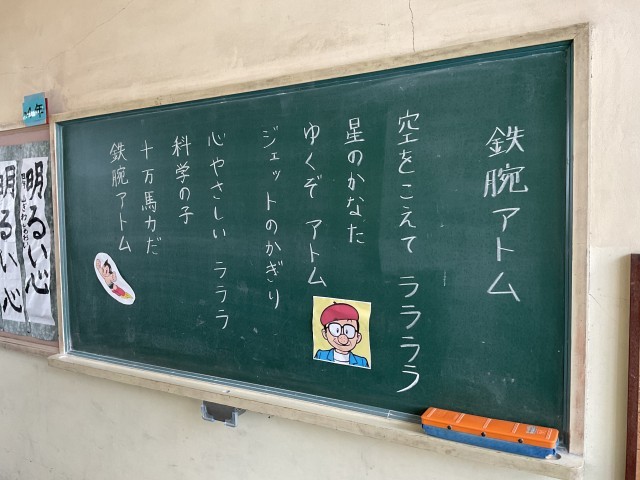 鉄腕アトム
空をこえて ララララ
星のかなた
ゆくぞ アトム
ジェットのかぎり
心やさしい ラララ
科学の子
十万馬力だ
鉄腕アトム
明るい心
明るい心